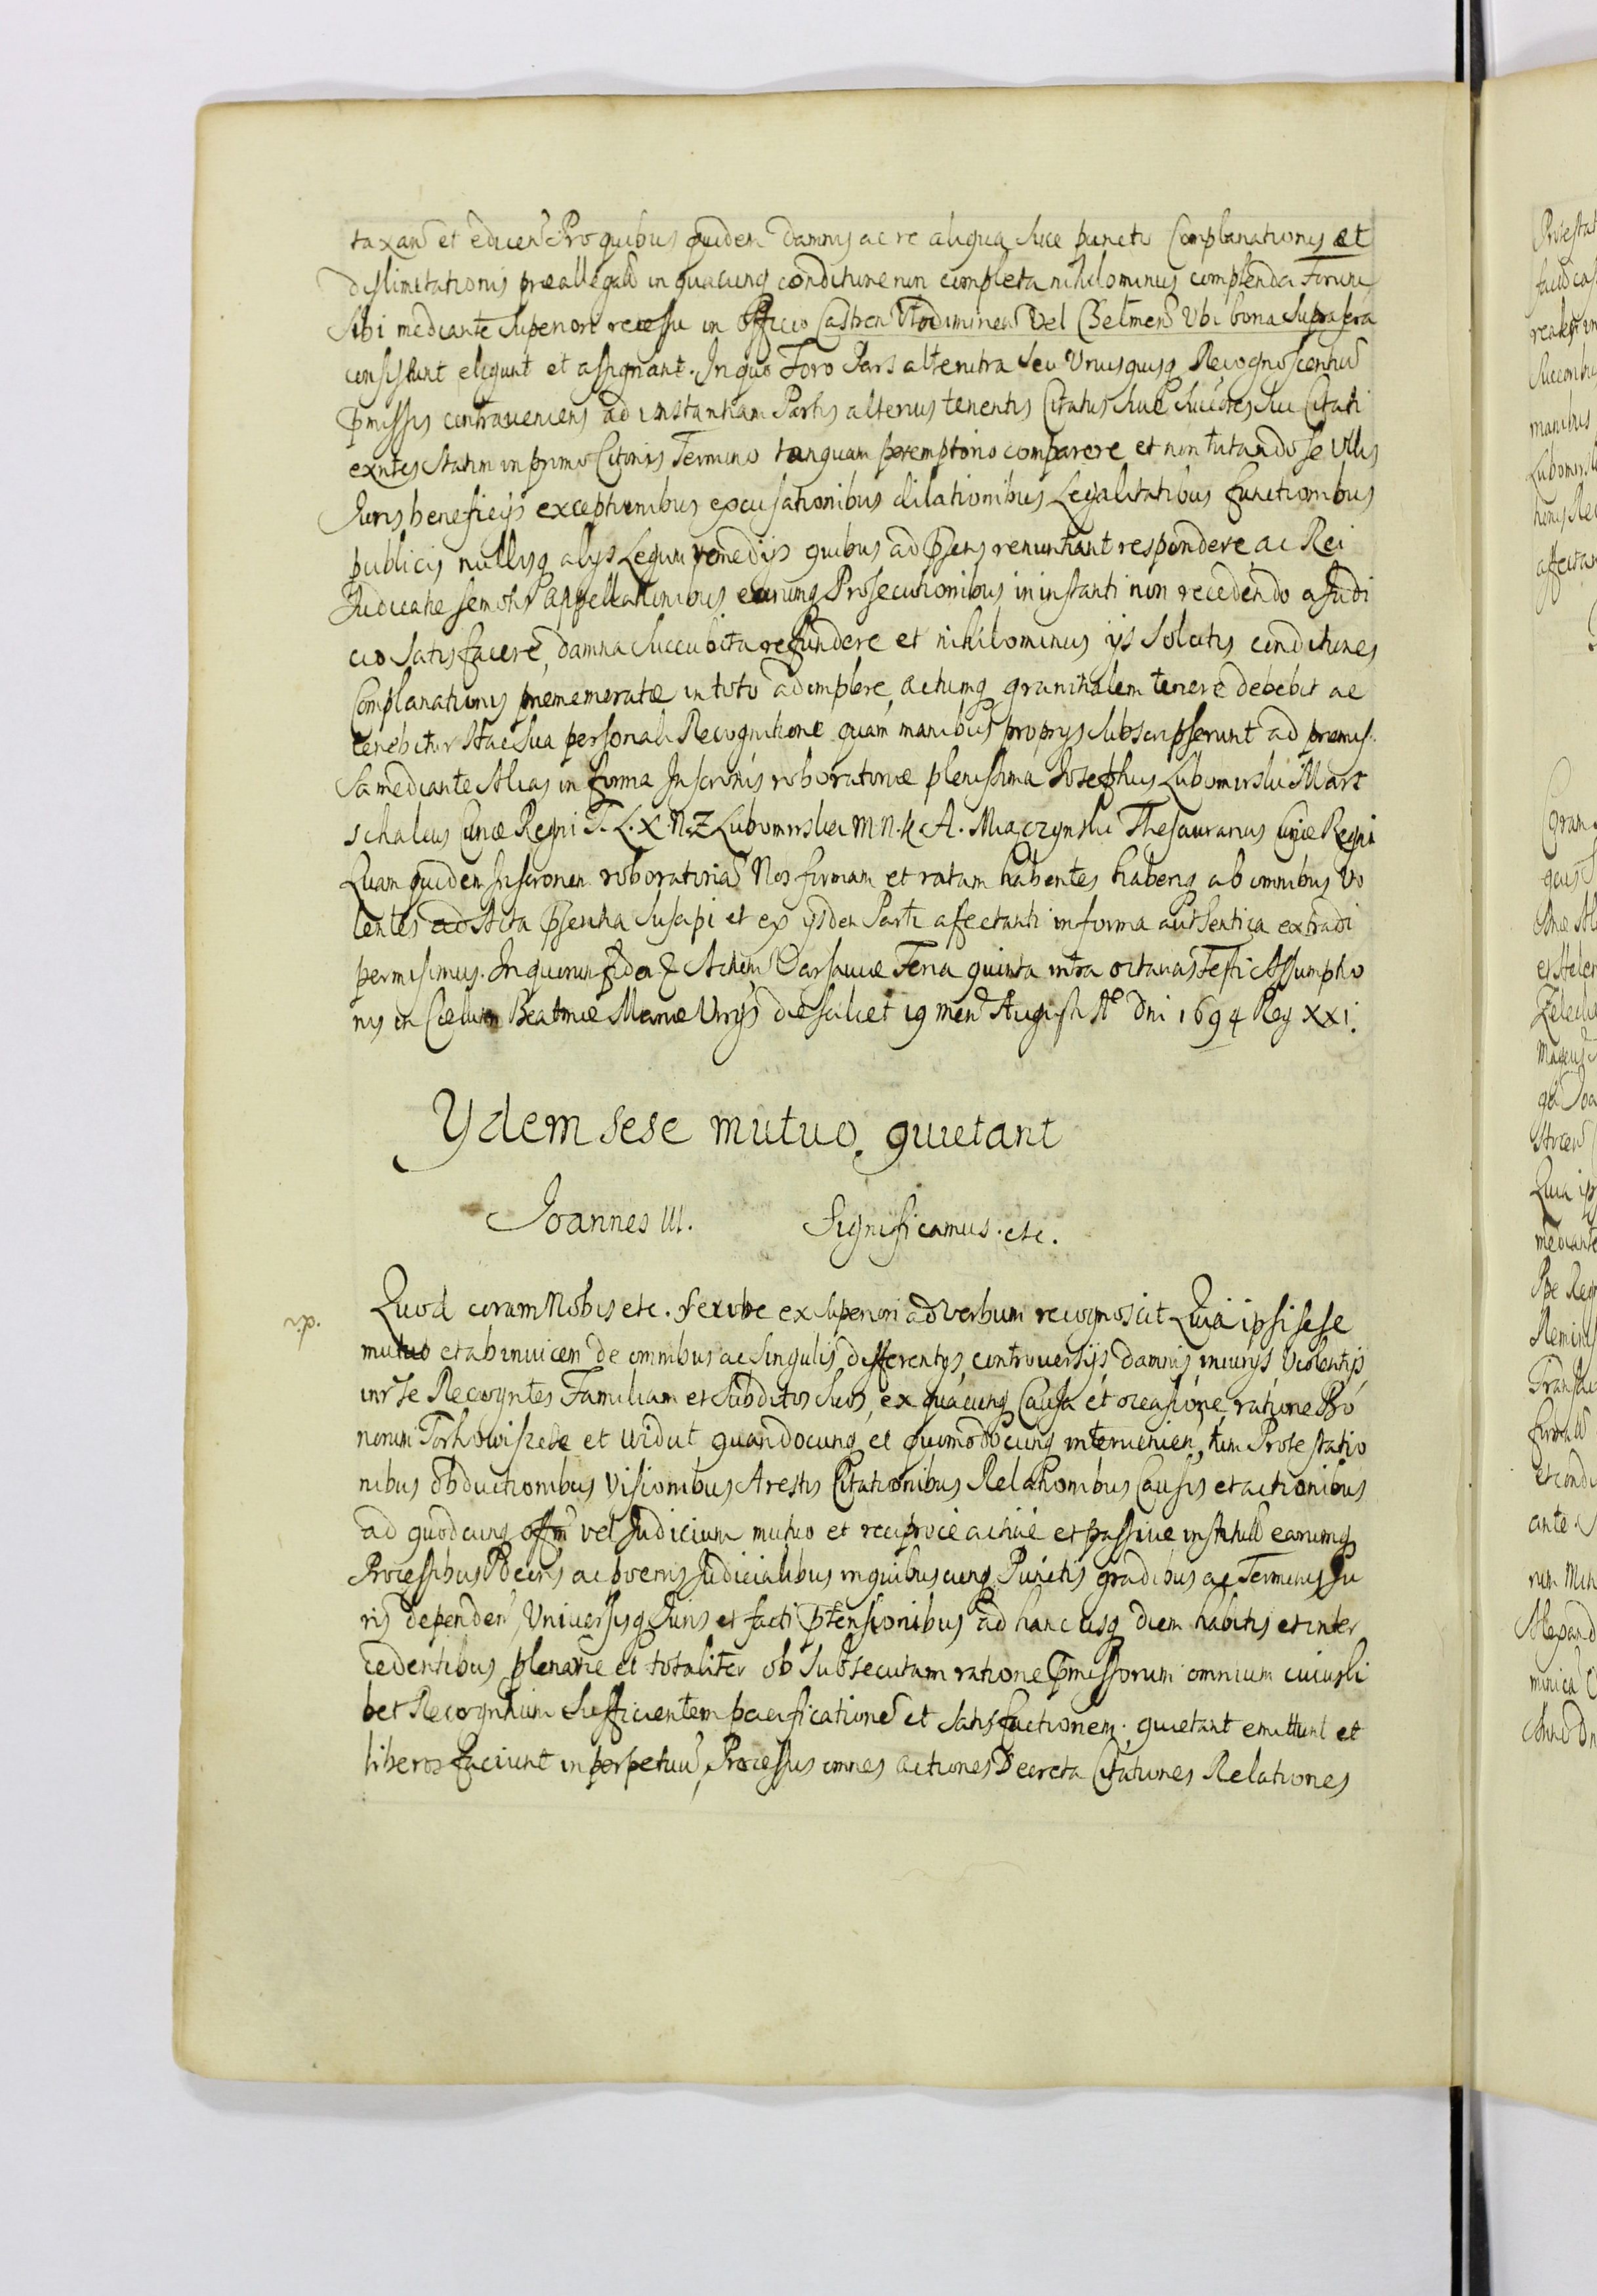 taxan et educen Pro quibus quidem damnis ac re aliqua suce puncto Complanationis et
dislimitationis preallegatd in quacunq conditione non completa nihilominus complenda Forum
Sibi mediante Superiori recessu in Officio Castren Vlodimirien Vel Chelmen Vbi bona Suprascra
consistunt eligunt et assignant. In quo Foro Pars alterutra Seu Vnusquisq Recognoscentiu
pmissis contraveniens ad instantiam Partis alterius tenentis Citatus Sive Succres Sui Citati
exntes Statim in primo Citonis Termino tanquam peremptorio comparere et non tutando se Vllis
Juris beneficijs exceptionibus excusationibus dilationibus Legalitatibus functionibus
publicis nullisq alijs Legum remedijs quibus ad psens renuntiant respondere ac Rei
Judicatæ semotis appellationibus earumq Prosecutionibus in instanti non recedendo a Judi
cio Satisfacere, damna Succubita refundere et nihilominus ijs Solutis conditiones
Complanationis prememoratæ in toto adimplere, actumq granitialem tenere debebit ac
tenebitur Hac Sua personali Recognitione quam manibus proprijs Subscripserunt ad premis
sa mediante Alias in forma Inscronis roboratoriæ plenissima Josephus Lubomirski Mars
schalcus Curiæ Regni T. L. X. N. Z Lubomirska M. N. K A. Miączynski Thesaurarius Curiæ Regni
Quam quidem Inscronem roboratoria Nos firmam et ratam habentes haberiq ab omnibus Vo
lentes ad Acta psentia Suscipi et ex ijsdem Parti afectanti in forma authentica extradi
permisimus. In quorum fidem & Actum Varsaviæ Feria quinta intra octavas Festi Assumptio
nis in Cælum Beatmæ Mariæ Vrgis die scilicet 19 men Augusti Ao Dni 1694 Reg XXI.
Ydem sese mutuo quietant
Joannes III. Significamus. etc.
Quod coram Nobis etc. scribe ex Superiori ad verbum recognoscit Quia ipsi sese
mutuo et ab invicem de omnibus ac Singulis differentijs, controversijs damnis iniurijs Violentijs
inr Se Recogntes Familiam et Subditos Suos, ex quacunq Causa et occasione, ratione Bo
norum Torhowiszcze et Widut quandocunq et quomodocunq intervenien, tum Protestatio
nibus obductionibus Visionibus Arestis Citationibus Relationibus Causis et actionibus
ad quodcunq offm vel Judicium mutuo et reciproce active et passive institutd earumq
Processibus Decris ac poenis Judicialibus in quibuscunq Punctis gradibus ac Terminis Ju
ris dependen, Universisq Juris et facti ptensionibus ad hanc usq diem habitis et inter
cedentibus plenarie et totaliter ob Subsecutam ratione pmissorum omnium cuiusli
bet Recogntium Sufficientem pacificatione et Satisfactionem. quietant emittunt et
liberos faciunt in perpetuu, Processus omnes actiones Decreta Citationes Relationes